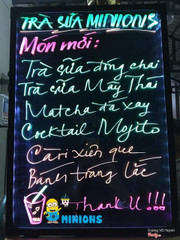 TRÀ SỮA MINIONS
Món mới:
Trà sữa đóng chai
Trà sữa Máy Thái
Matcha đá xay
Cocktail Mojito
Cari xiên que
Bánh tráng lắc
Thank U!!!
MINIONS